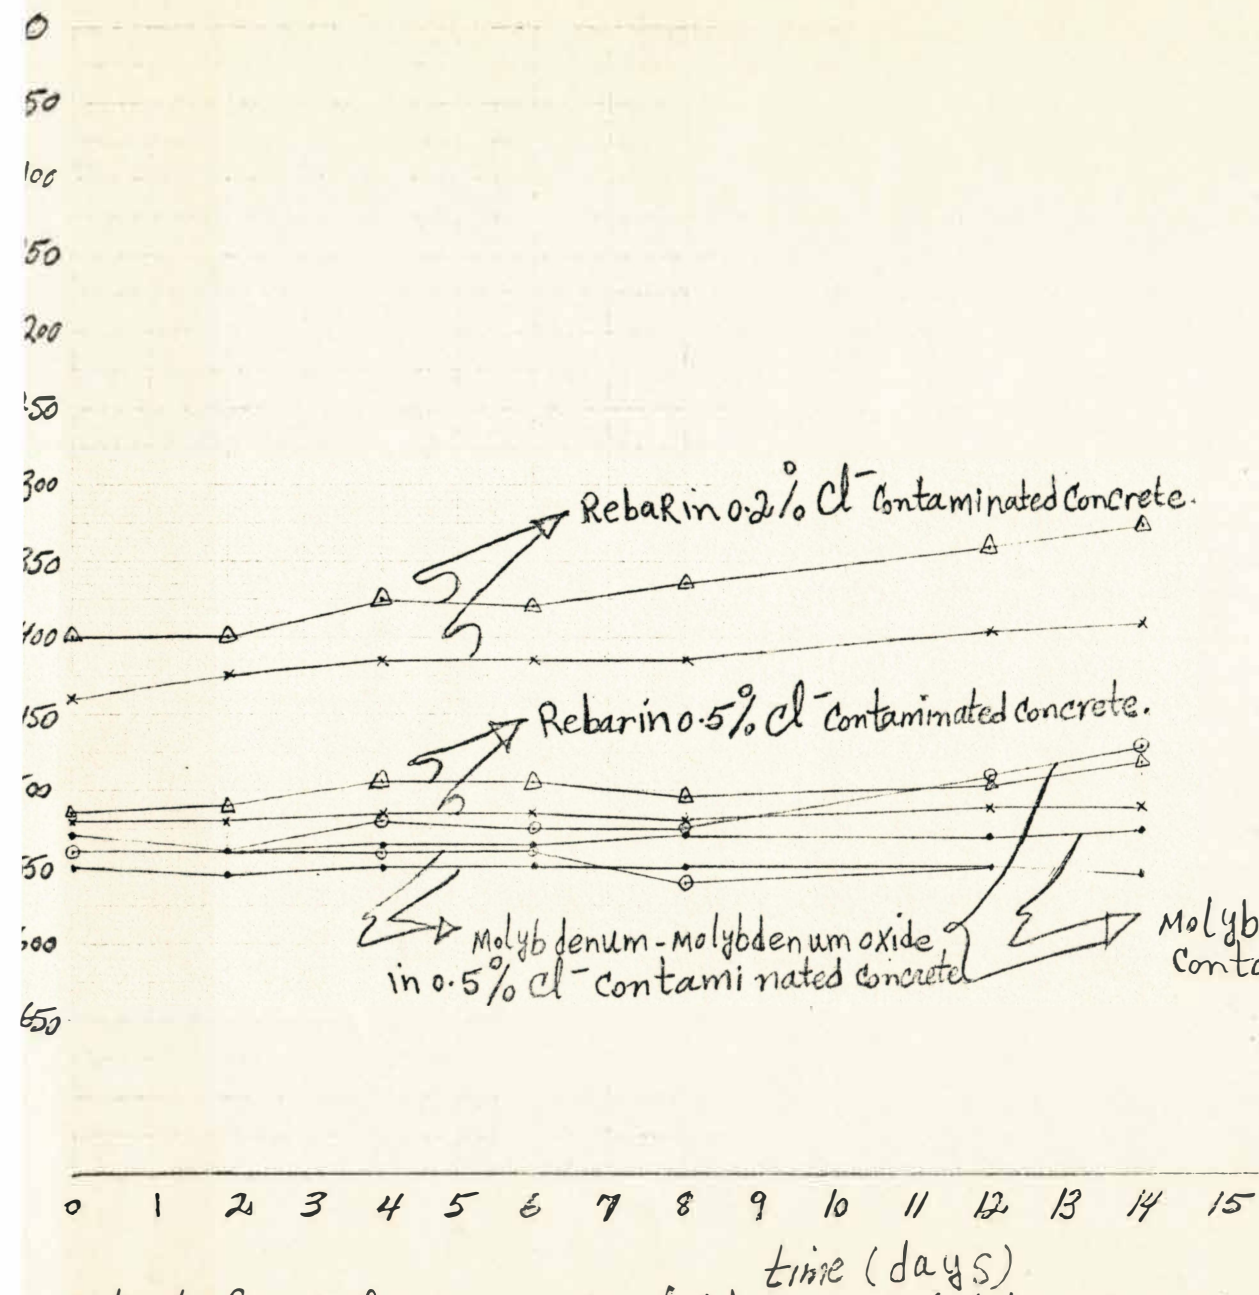 0
50
100
50
200
50
300
350
400
450
00
50
600
650
RebaRin 0.2% Cl⁻ Contaminated Concrete.
Rebarin 0.5% Cl⁻ Contaminated Concrete.
Molybdenum-Molybdenum oxide
in 0.5% Cl⁻ Contaminated Concrete
Molyb
Conta
0 1 2 3 4 5 6 7 8 9 10 11 12 13 14 15
time (days)